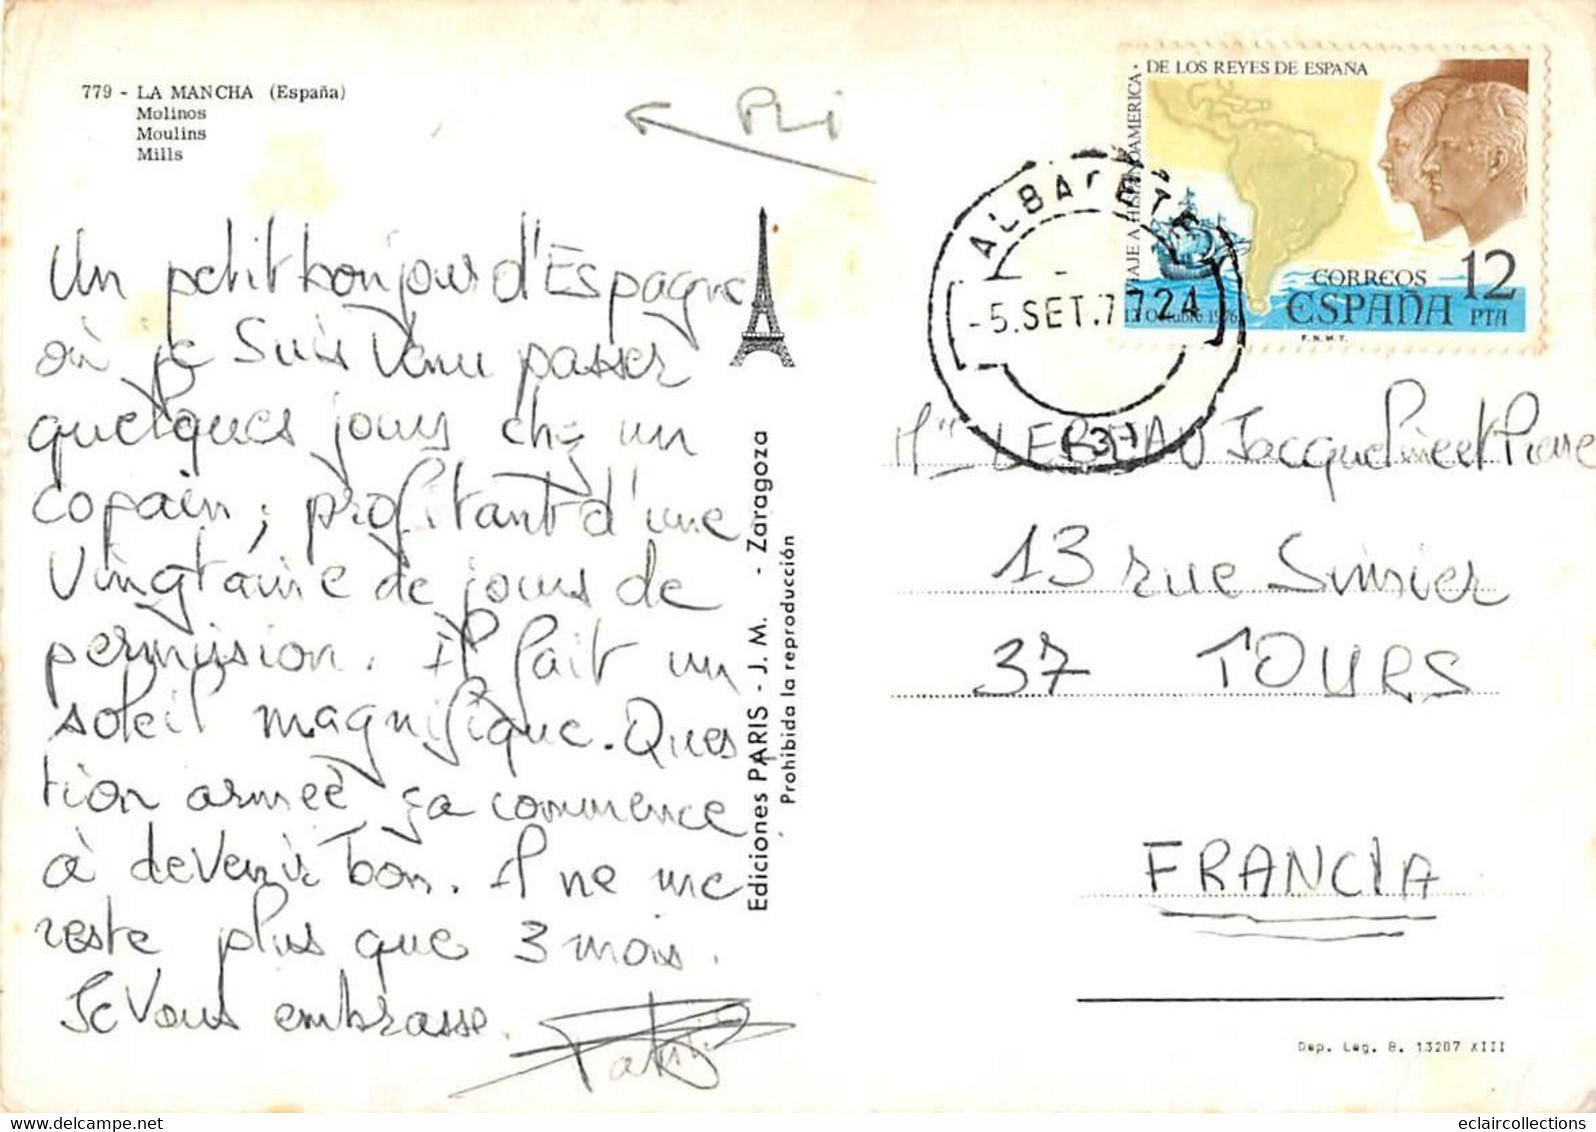 779 - LA MANCHA (España)
Molinos
Moulins
Mills
Pli
Un petit bonjour d'Espagne
où je suis venu passer
quelques jours chez un
copain, profitant d'une
vingtaine de jours de
permission. Il fait un
soleil magnifique. Ques
tion armée ça commence
à devenir bon. Il ne me
reste plus que 3 mois.
Je vous embrasse.
Ediciones PARIS - J. M. - Zaragoza
Prohibida la reproducción
VIAJE A HISPANOAMERICA · DE LOS REYES DE ESPAÑA
12 Octubre 1976
CORREOS
ESPAÑA
12
PTA
F.N.M.T.
ALBACETE
-5.SET.77 24
LEBEAU Jacqueline et Pierre
13 rue Simier
37 TOURS
FRANCIA
Dep. Leg. B. 13207 XIII
eclaircollections